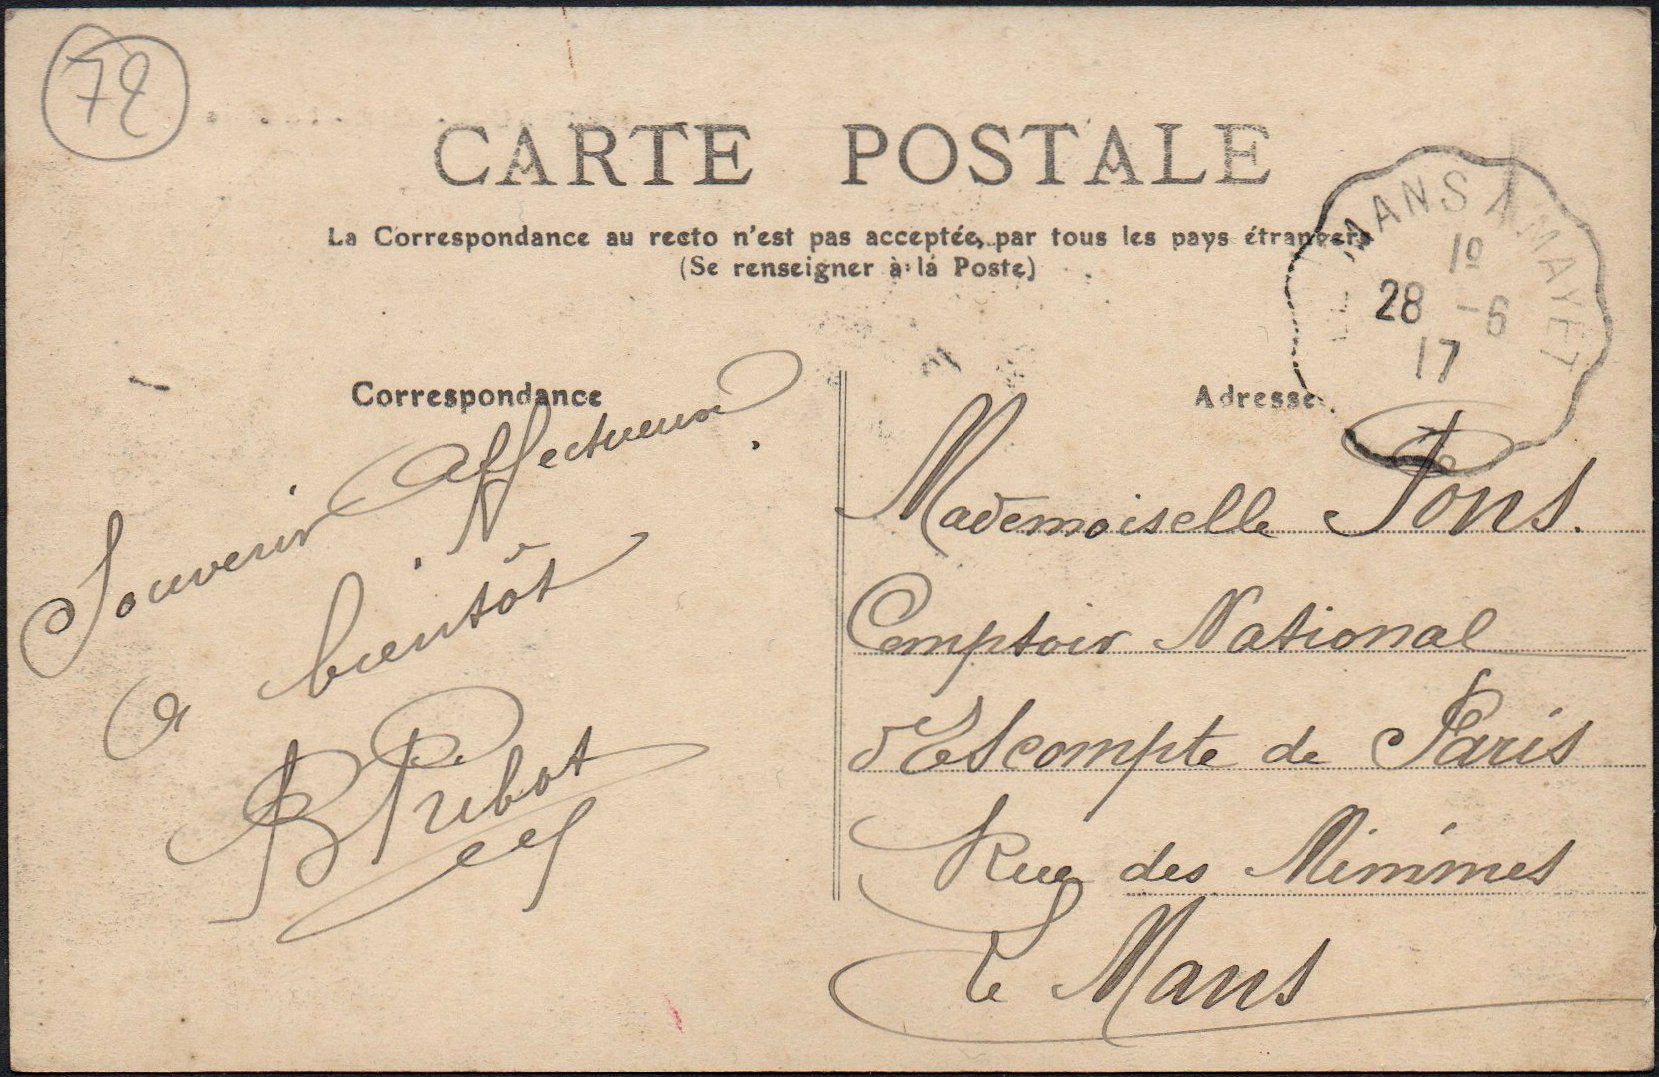 72
CARTE POSTALE
La Correspondance au recto n'est pas acceptée, par tous les pays étrangers
(Se renseigner à la Poste)
MANS A MAYET
1º
28 -6
17
Correspondance
Souvenir affectueux.
a bientôt
B Pubot
Adresse
Mademoiselle Pons.
Comptoir National
d'Escompte de Paris
Rue des Minimes
Le Mans